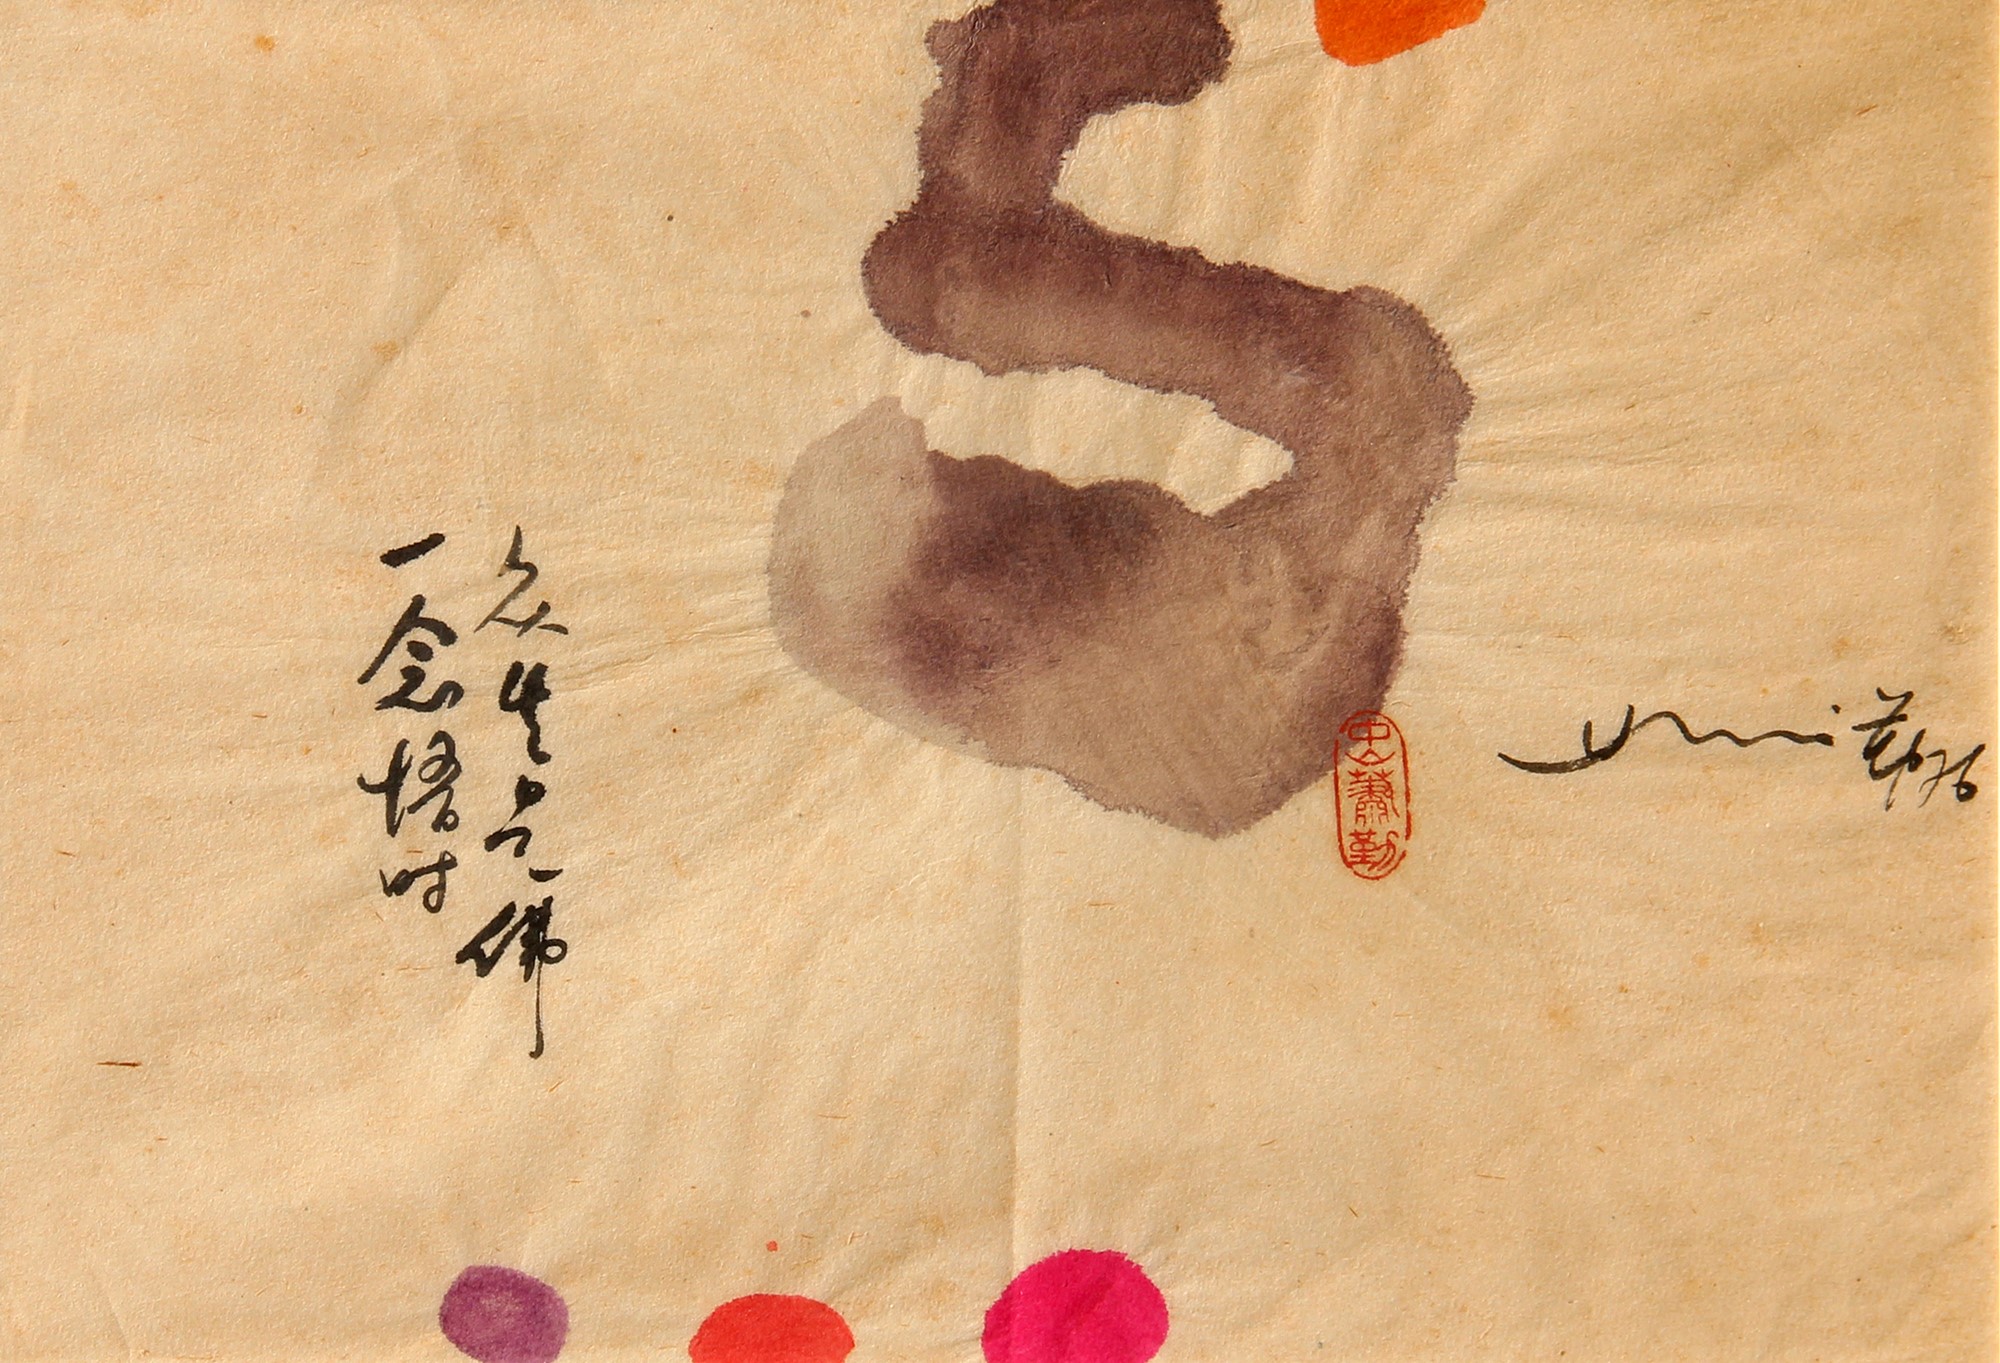 一念悟时
众生是佛
勤76
蕭勤